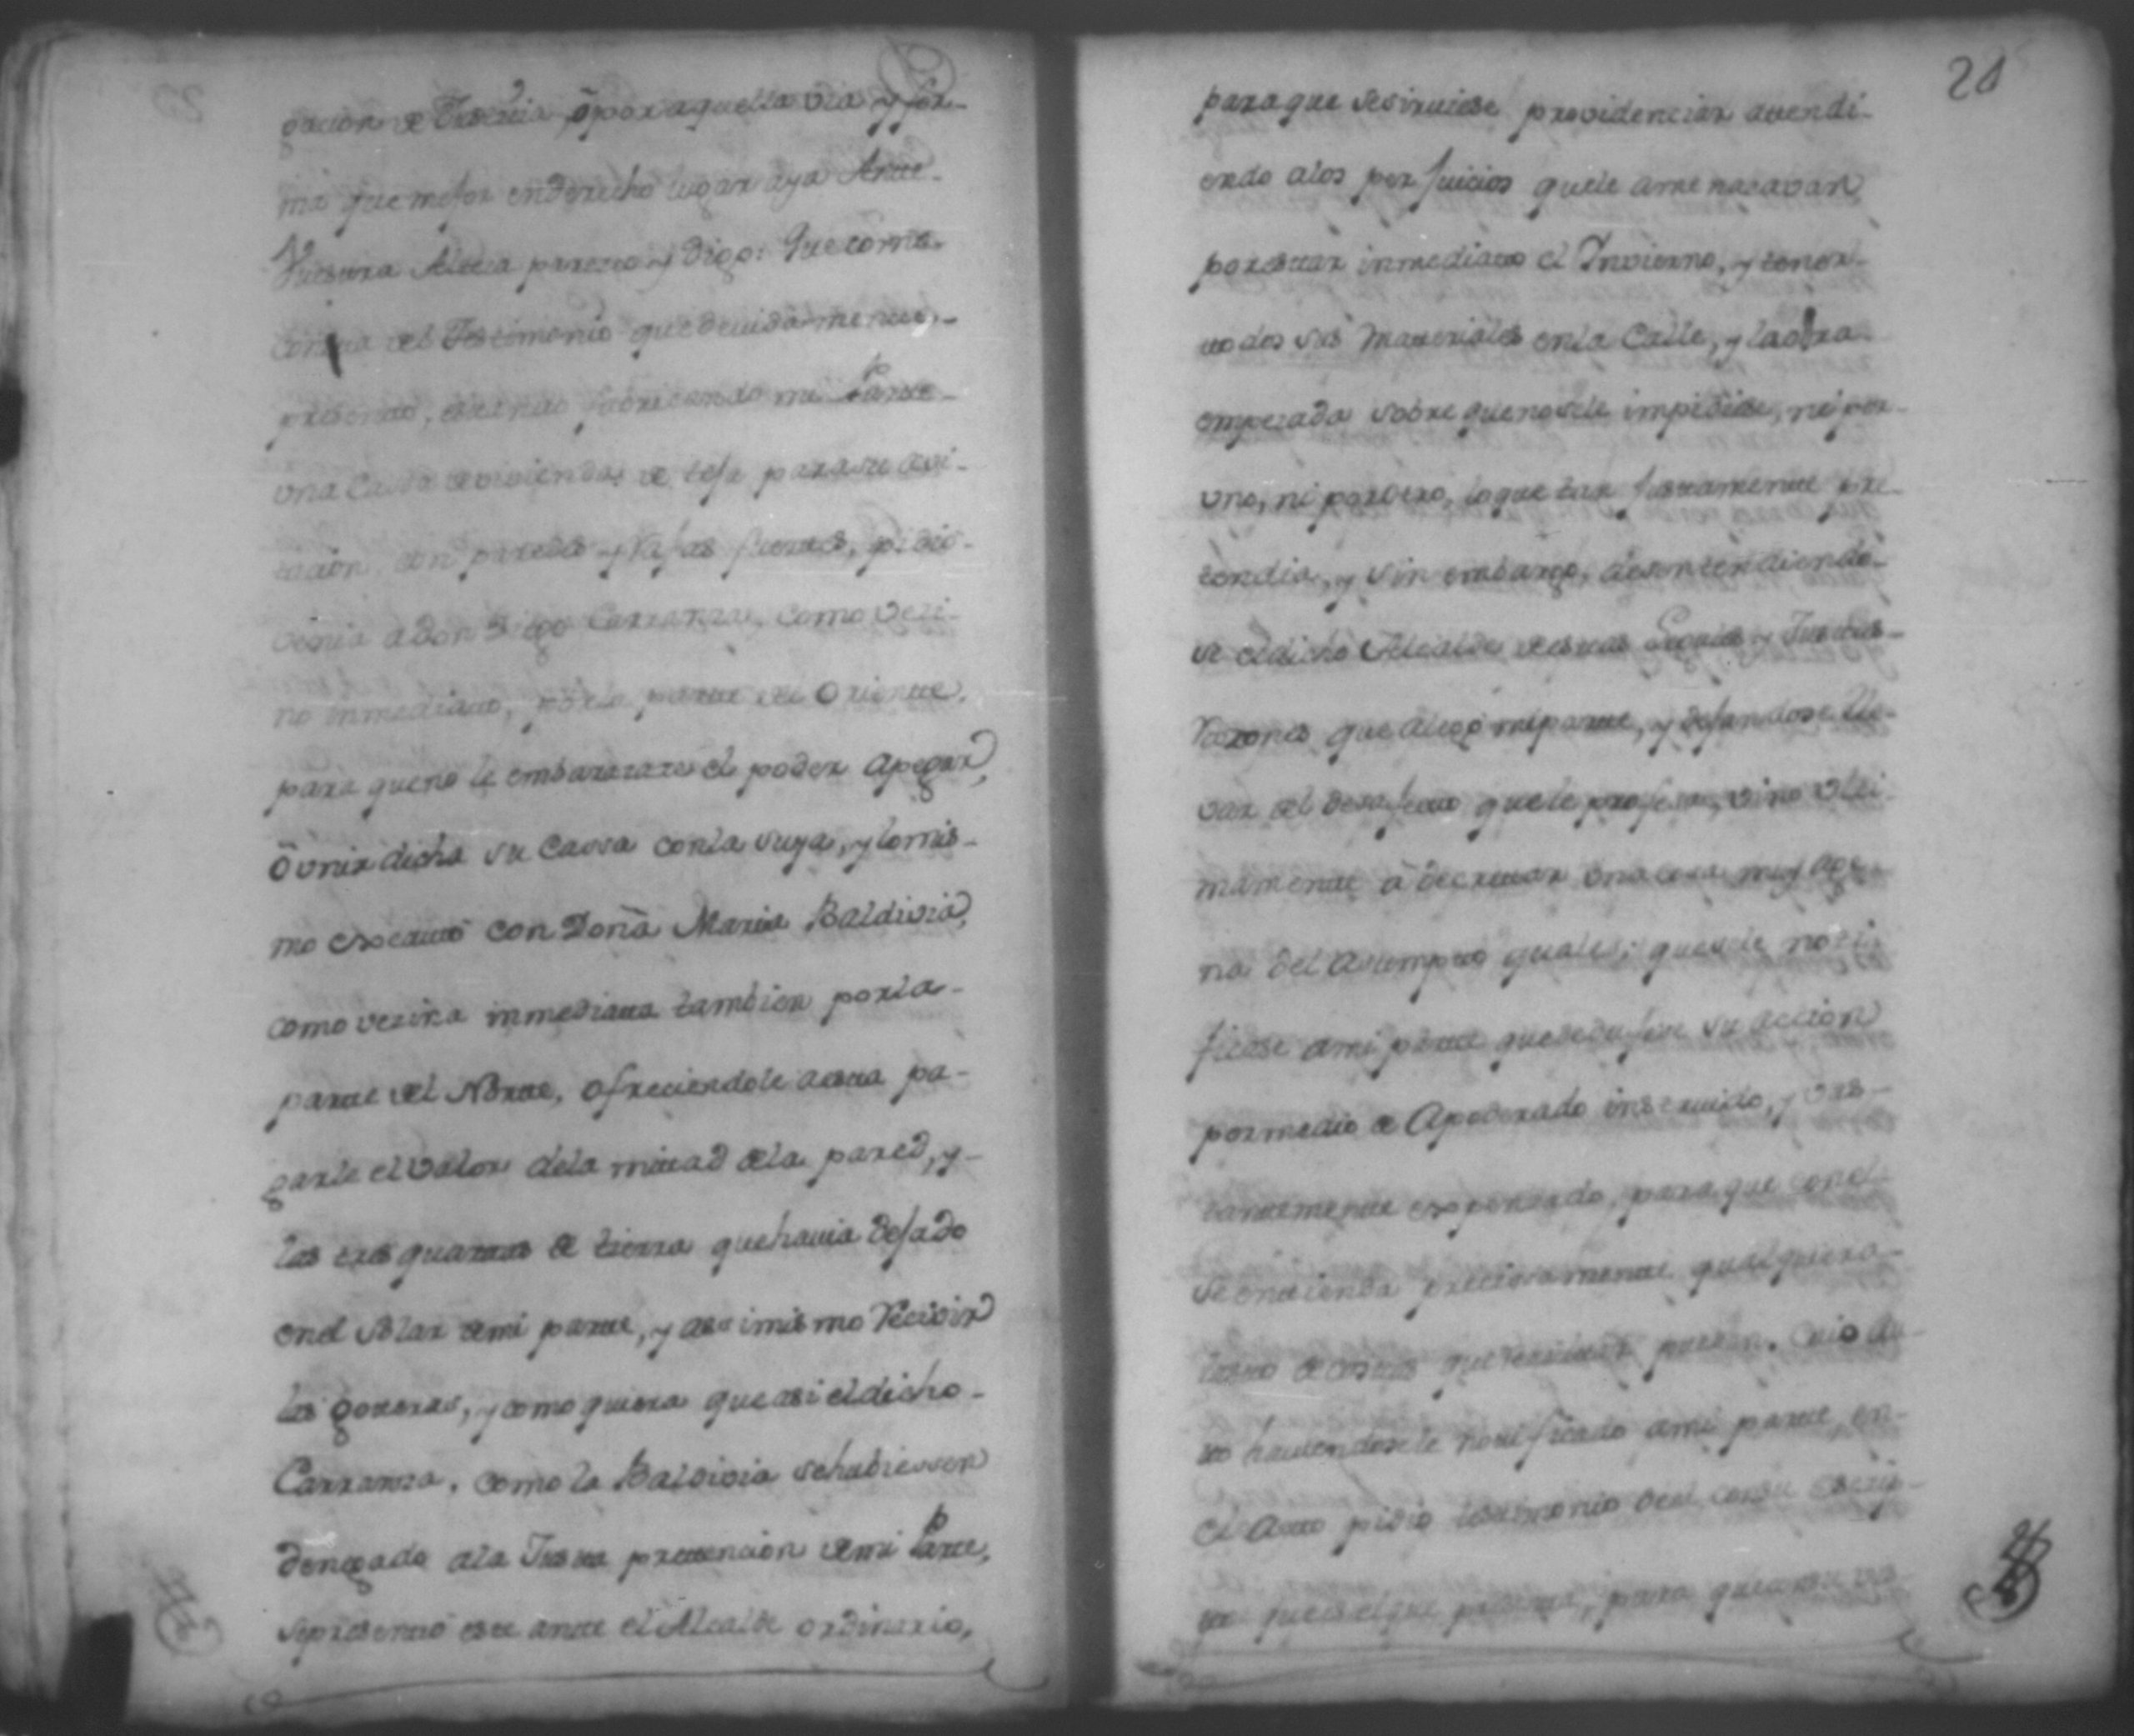 gacion de Justicia, ò por aquella via y for-
ma que mejor en derecho lugar aya Ante-
Vuestra Alteza parezco y digo: Que como-
consta del Testimonio que devidamente-
presento, estando fabricando mi Parte-
una Cassa de viviendas de teja para su avi-
tacion, con paredes y Rejas fuertes, pidio
venia a don Diego Carranza, como veci-
no inmediato, por la parte del Oriente,
para que no le embarazare el poder apegar,
ò unir dicha su Cassa con la suya, y lo mis-
mo executó con Doña Maria Baldivia,
como vezina inmediata tambien por la-
parte del Norte, ofreciendole a esta pa-
garle el valor de la mitad de la pared, y-
las tres quartas de tierra que havia dejado
en el solar de mi parte, y assimismo Recivir
las goteras, y como quiera que asi el dicho-
Carranza, como la Baldivia se hubiessen
denegado a la Justa pretencion de mi Parte,
se presentó este ante el Alcalde ordinario,
21
para que se sirviese providenciar atendi-
endo a los perjuicios que le amenazavan
por estar inmediato el Invierno, y tener-
todos sus materiales en la Calle, y la obra
empezada sobre que no se le impidiese, ni por-
uno, ni por otro, lo que tan justamente pre-
tendia, y sin embargo, desentendiendo-
se el dicho Alcalde de estas Legales y Justas-
Razones que alegó mi parte, y dejandose lle-
var del desafecto que le profesa, vino ulti-
mamente à decretar una cosa muy age-
na del asumpto qual es; que se le noti-
ficase a mi parte que dedujese su accion
por medio de Apoderado instruido, y vas-
tantemente expensado, para que con el-
se entienda precisamente qualquiera-
lasto de costas que resultar puedan. Cuio au-
to haviendosele notificado a mi parte, en-
el Acto pidio testimonio de el con su escrip-
to que es el que presenta, para que